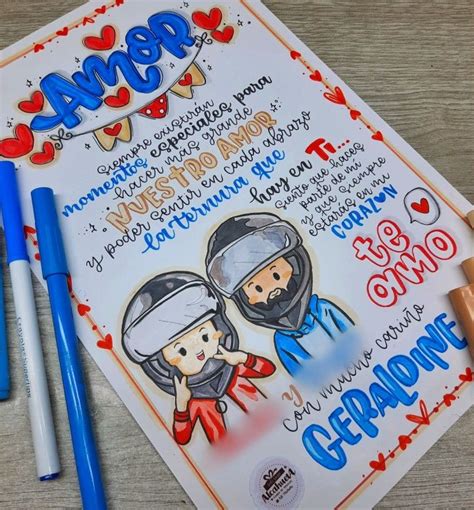 AMOR
Siempre existirán
momentos especiales para
hacer más grande
NUESTRO AMOR
y poder sentir en cada abrazo
la ternura que
hay en Ti...
Siento que haces
parte de mi
y que siempre
estarás en mi
CORAZÓN
te
amo
y
con mucho cariño
GERALDINE